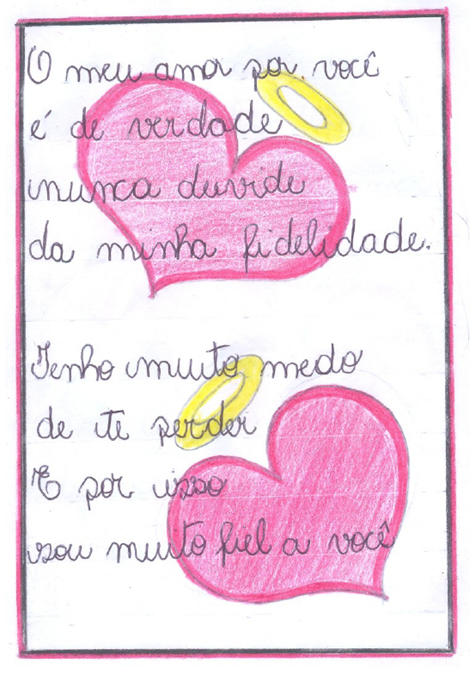 O meu amor por você
é de verdade
nunca duvide
da minha fidelidade.
Tenho muito medo
de te perder
E por isso
sou muito fiel a você